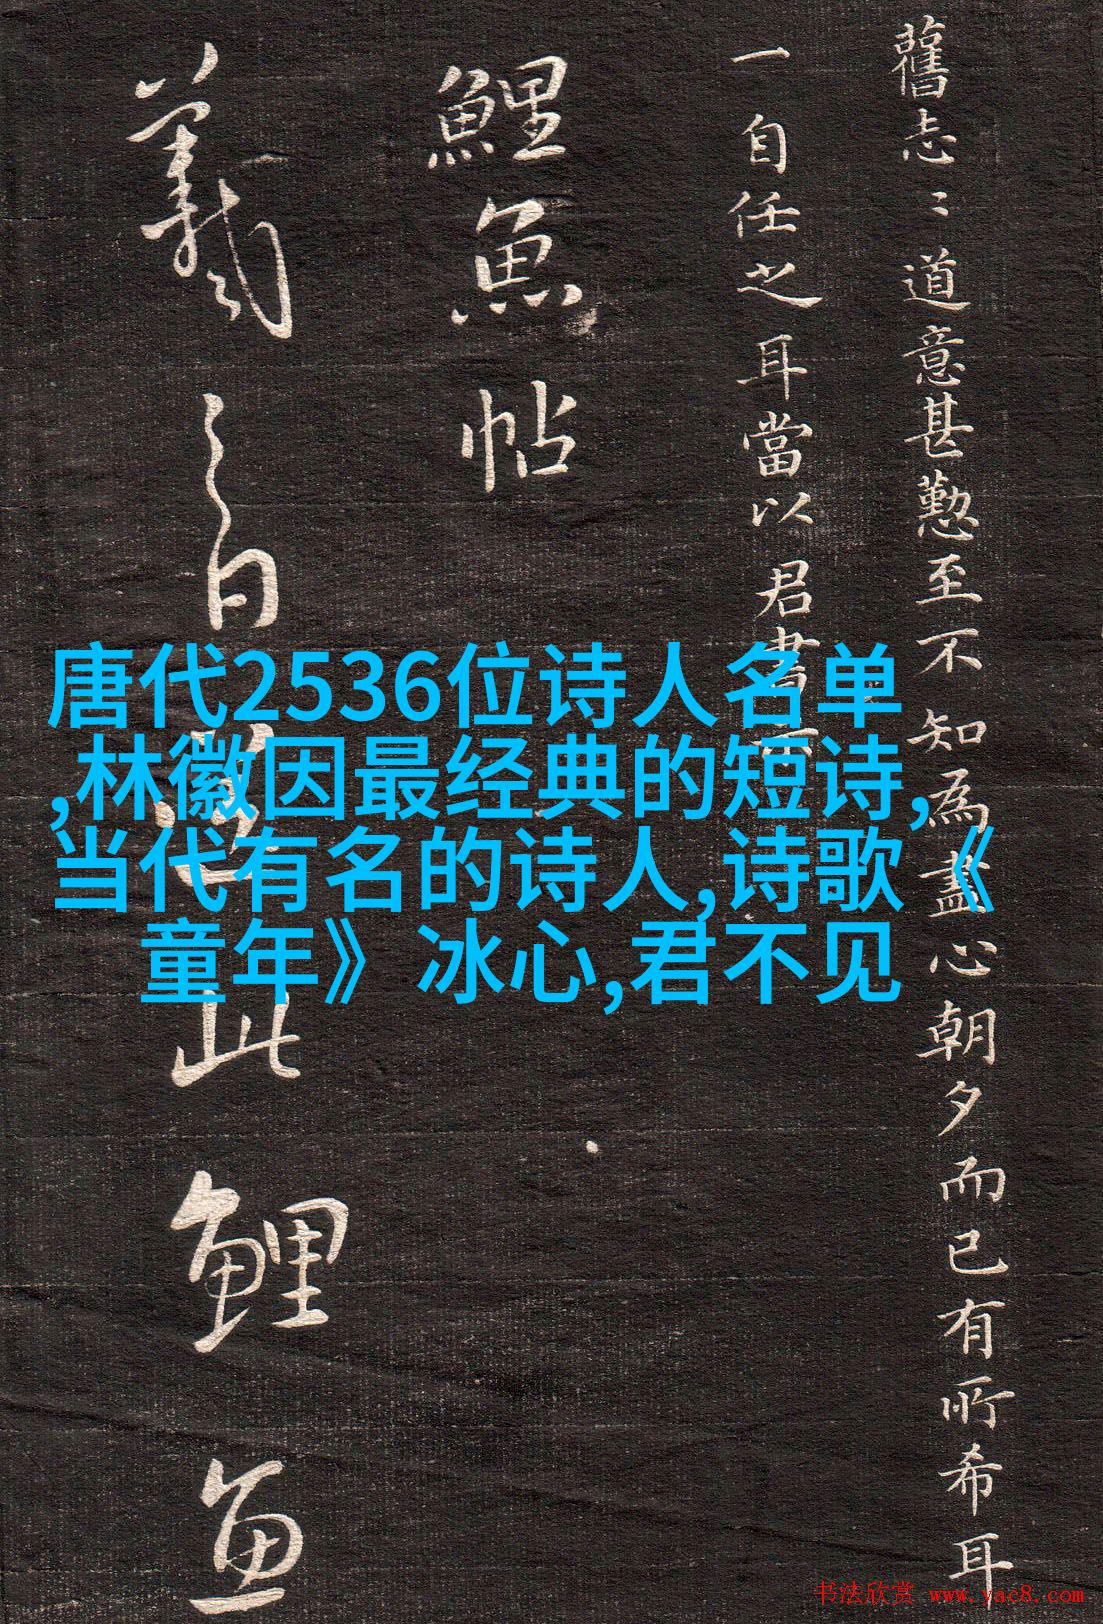 舊志〻道意甚懃至不知為盡心朝夕而已有所希耳
一自任之耳當以君書
鯉魚帖
羲之白 此鯉魚
唐代2536位诗人名单
,林徽因最经典的短诗,
当代有名的诗人,诗歌《
童年》冰心,君不见
书法欣赏 www.yac8.com